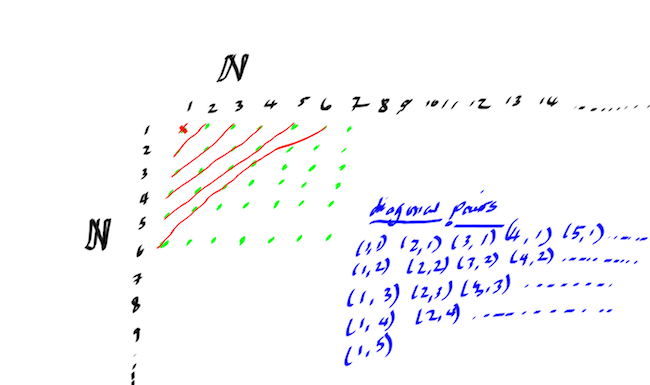 ℕ
1 2 3 4 5 6 7 8 9 10 11 12 13 14 ........
1
2
3
4
5
6
7
8
9
ℕ
diagonal pairs
(1,1) (2,1) (3,1) (4,1) (5,1) ......
(1,2) (2,2) (3,2) (4,2) ..........
(1,3) (2,3) (3,3) ........
(1,4) (2,4) ............
(1,5)